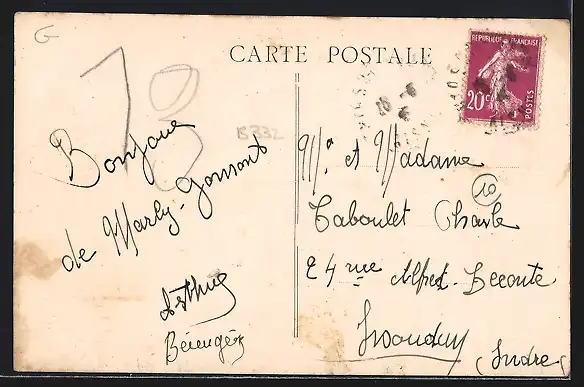 G
CARTE POSTALE
REPUBLIQUE FRANÇAISE
20c
POSTES
13
B332
Bonjour
de Marly-Gomont
Bérenger
Mr et Madame
10
Taboulet Charle
24 rue Alfred-Leconte
Issoudun
(Indre)